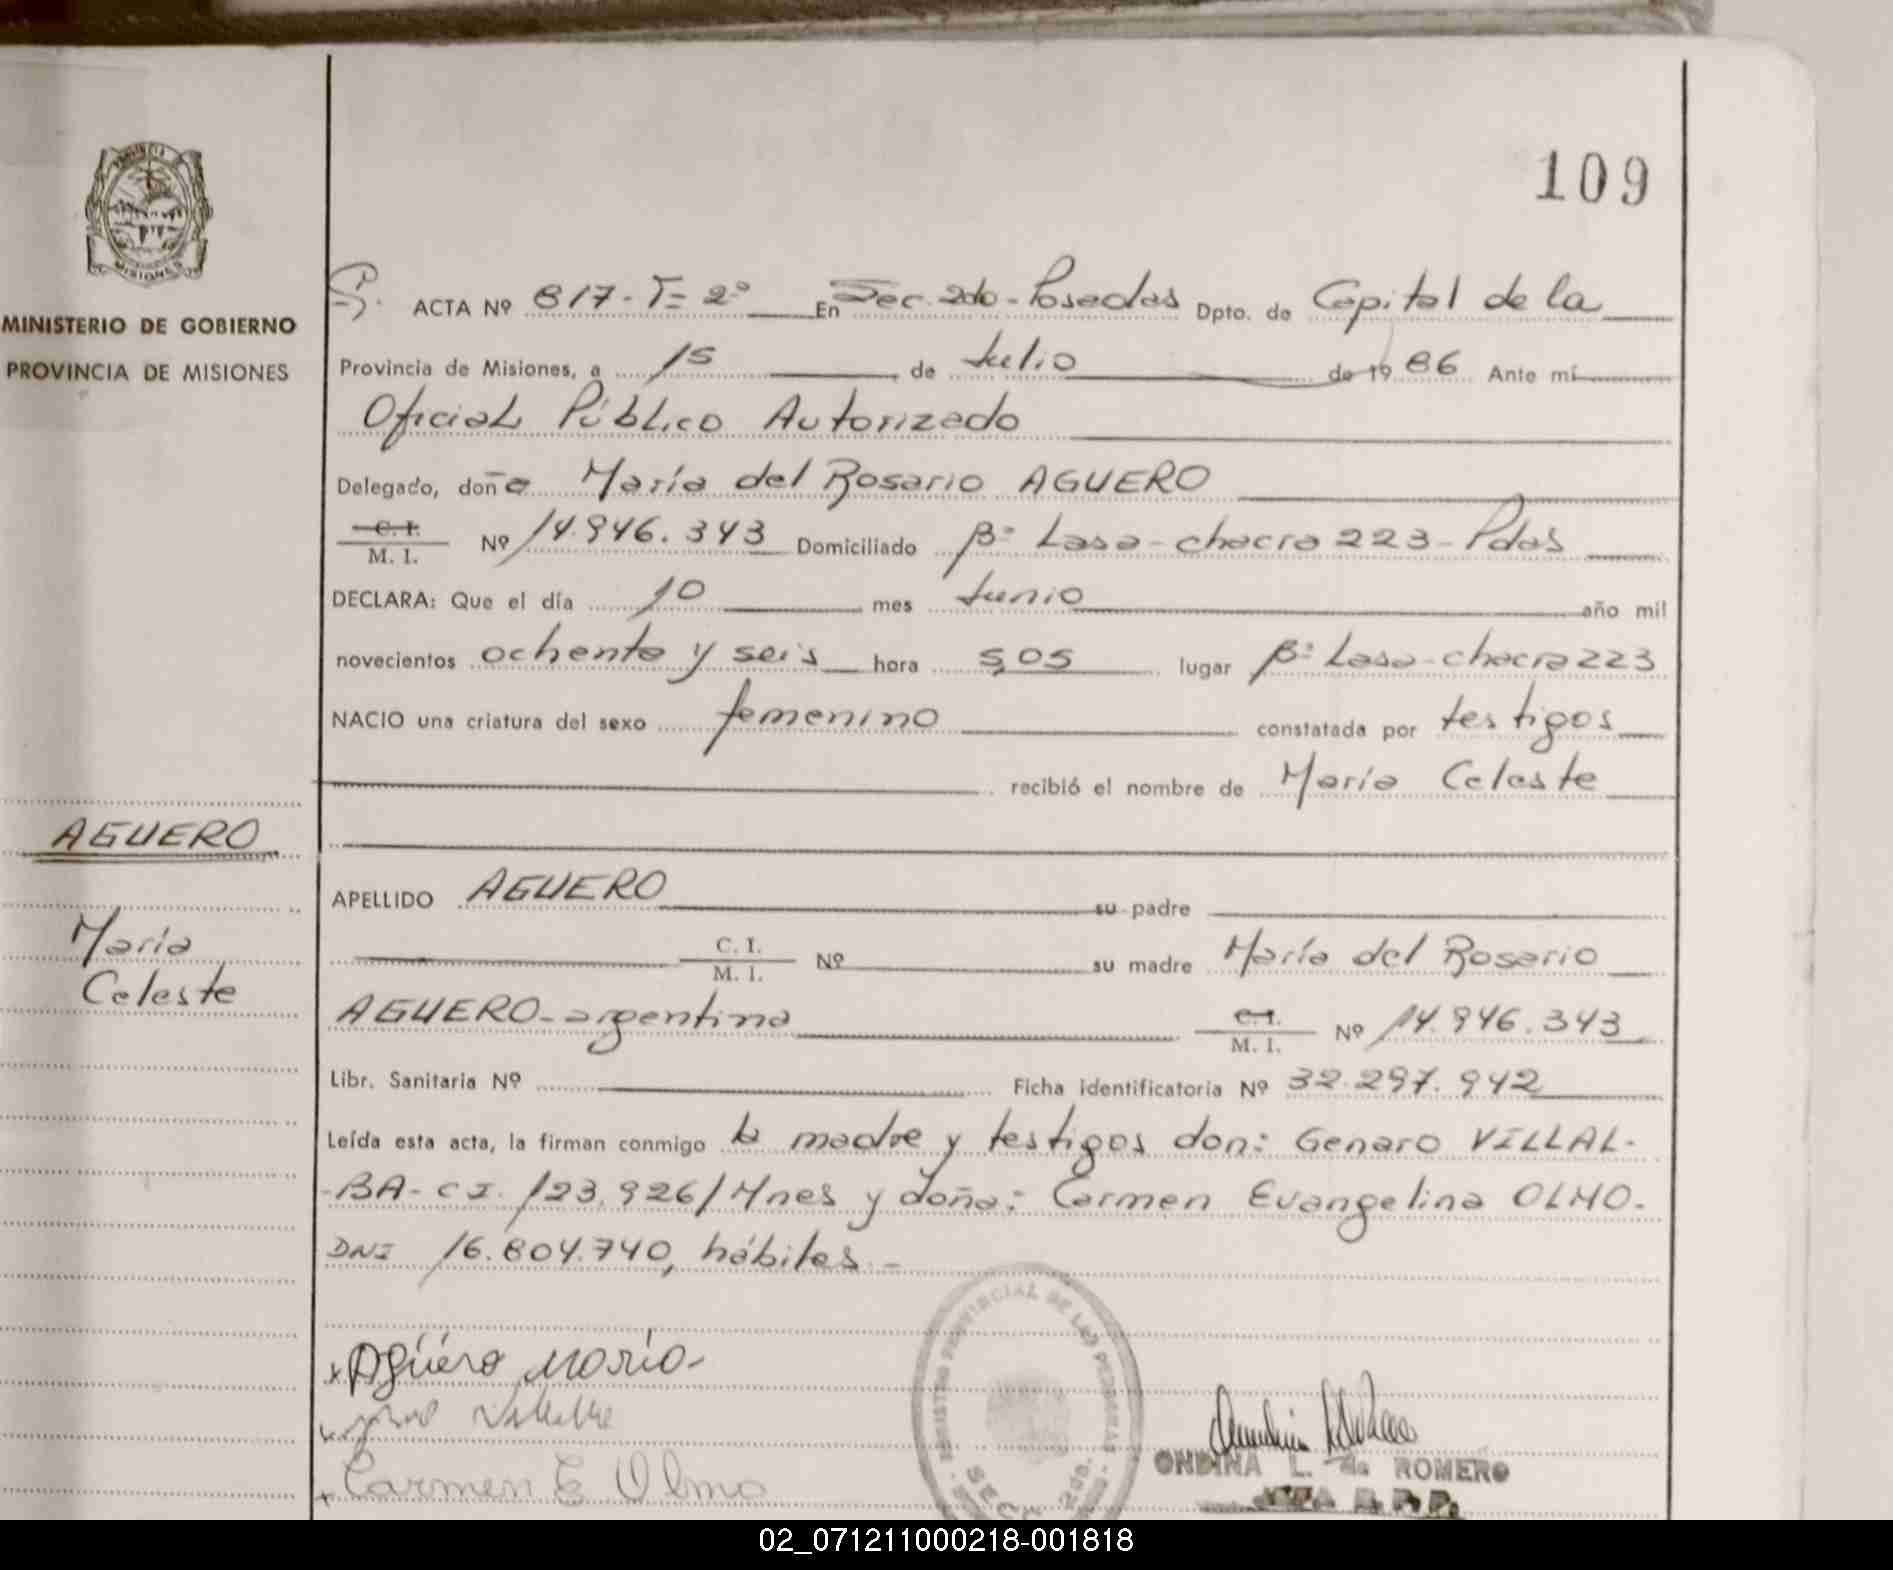 109
PROVINCIA
MISIONES
MINISTERIO DE GOBIERNO
PROVINCIA DE MISIONES
ACTA Nº 817 - T= 2º En Sec. 2do - Posadas Dpto. de Capital de la
Provincia de Misiones, a 15 de Julio de 19 86 Ante mí
Oficial Público Autorizado
Delegado, doña María del Rosario AGUERO
C. I. / M. I. Nº 14.946.343 Domiciliado Bº Lasa - chacra 223 - Pdas
DECLARA: Que el día 10 mes Junio año mil
novecientos ochenta y seis hora 5,05 lugar Bº Lasa - chacra 223
NACIO una criatura del sexo femenino constatada por testigos
recibió el nombre de María Celeste
AGUERO
María
Celeste
APELLIDO AGUERO su padre
C. I. / M. I. Nº su madre María del Rosario
AGUERO - argentina C. I. / M. I. Nº 14.946.343
Libr. Sanitaria Nº Ficha identificatoria Nº 32.297.942
Leída esta acta, la firman conmigo la madre y testigos don: Genaro VILLAL-
-BA - C I. 123.926/Mnes y doña: Carmen Evangelina OLMO.
DNI 16.804.740, hábiles -
Agüero María
Carmen E Olmo
REGISTRO PROVINCIAL DE LAS PERSONAS
SECC. 2da.
ONDINA L. de ROMERO
JEFA R.P.P.
02_071211000218-001818